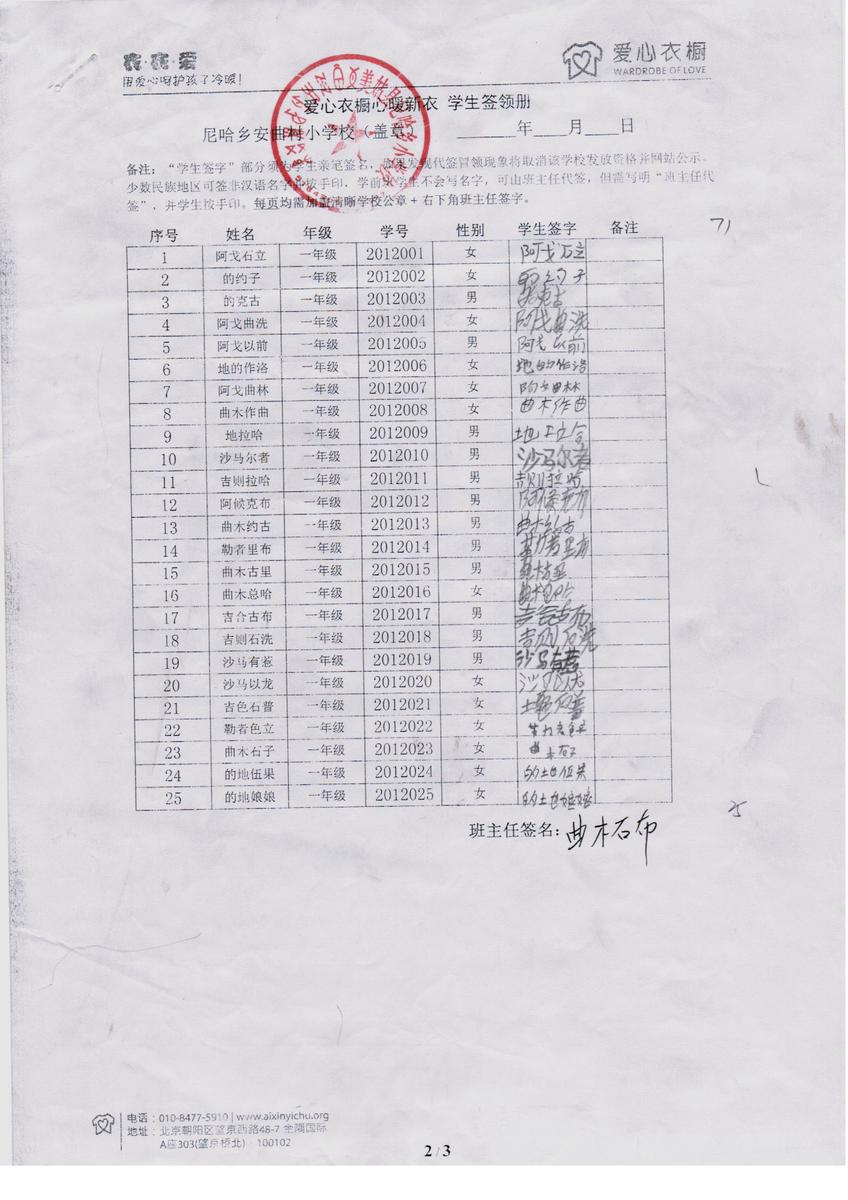 衣·衣·爱
用爱心呵护孩子冷暖!
爱心衣橱
WARDROBE OF LOVE
爱心衣橱心暖新衣 学生签领册
尼哈乡安曲村小学校(盖章) ______年____月____日
备注:“学生签字”部分须为学生亲笔签名,如果发现代签冒领现象将取消该学校发放资格并网站公示。
少数民族地区可签非汉语名字加按手印,学前班学生不会写名字,可由班主任代签,但需写明“班主任代
签”,并学生按手印。每页均需加盖清晰学校公章+右下角班主任签字。
71
序号 姓名 年级 学号 性别 学生签字 备注
1 阿戈石立 一年级 2012001 女 阿戈石立
2 的约子 一年级 2012002 女
3 的克古 一年级 2012003 男
4 阿戈曲洗 一年级 2012004 女 阿戈曲洗
5 阿戈以前 一年级 2012005 男 阿戈以前
6 地的作洛 一年级 2012006 女 地的作洛
7 阿戈曲林 一年级 2012007 女 阿戈曲林
8 曲木作曲 一年级 2012008 女 曲木作曲
9 地拉哈 一年级 2012009 男
10 沙马尔者 一年级 2012010 男 沙马尔者
11 吉则拉哈 一年级 2012011 男 吉则拉哈
12 阿候克布 一年级 2012012 男 阿候克布
13 曲木约古 一年级 2012013 男 曲木约古
14 勒者里布 一年级 2012014 男 勒者里布
15 曲木古里 一年级 2012015 男
16 曲木总哈 一年级 2012016 女
17 吉合古布 一年级 2012017 男 吉合古布
18 吉则石洗 一年级 2012018 男 吉则石洗
19 沙马有惹 一年级 2012019 男 沙马有惹
20 沙马以龙 一年级 2012020 女
21 吉色石普 一年级 2012021 女
22 勒者色立 一年级 2012022 女
23 曲木石子 一年级 2012023 女 曲木石子
24 的地伍果 一年级 2012024 女 的地伍果
25 的地娘娘 一年级 2012025 女 的地娘娘
班主任签名:曲木石布
25
电话:010-8477-5910 | www.aixinyichu.org
地址:北京朝阳区望京西路48-7 金隅国际
A座303(望京桥北) 100102
2/3